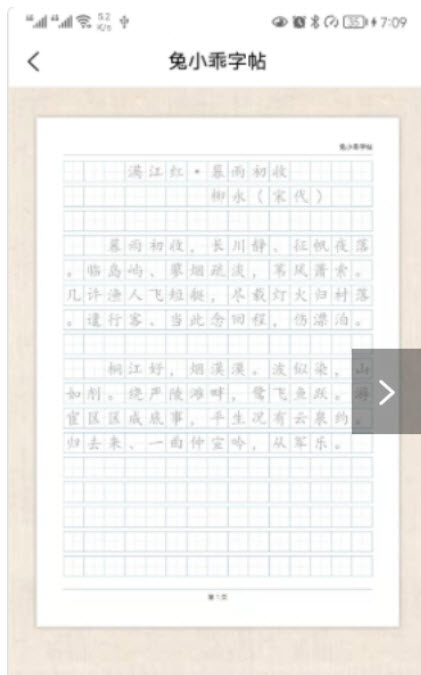 5.2
K/s
35
7:09
兔小乖字帖
兔小乖字帖
满江红·暮雨初收
柳永（宋代）
暮雨初收，长川静、征帆夜落
。临岛屿、蓼烟疏淡，苇风萧索。
几许渔人飞短艇，尽载灯火归村落
。遣行客、当此念回程，伤漂泊。
桐江好，烟漠漠。波似染，山
如削。绕严陵滩畔，鹭飞鱼跃。游
宦区区成底事，平生况有云泉约。
归去来、一曲仲宣吟，从军乐。
第1页